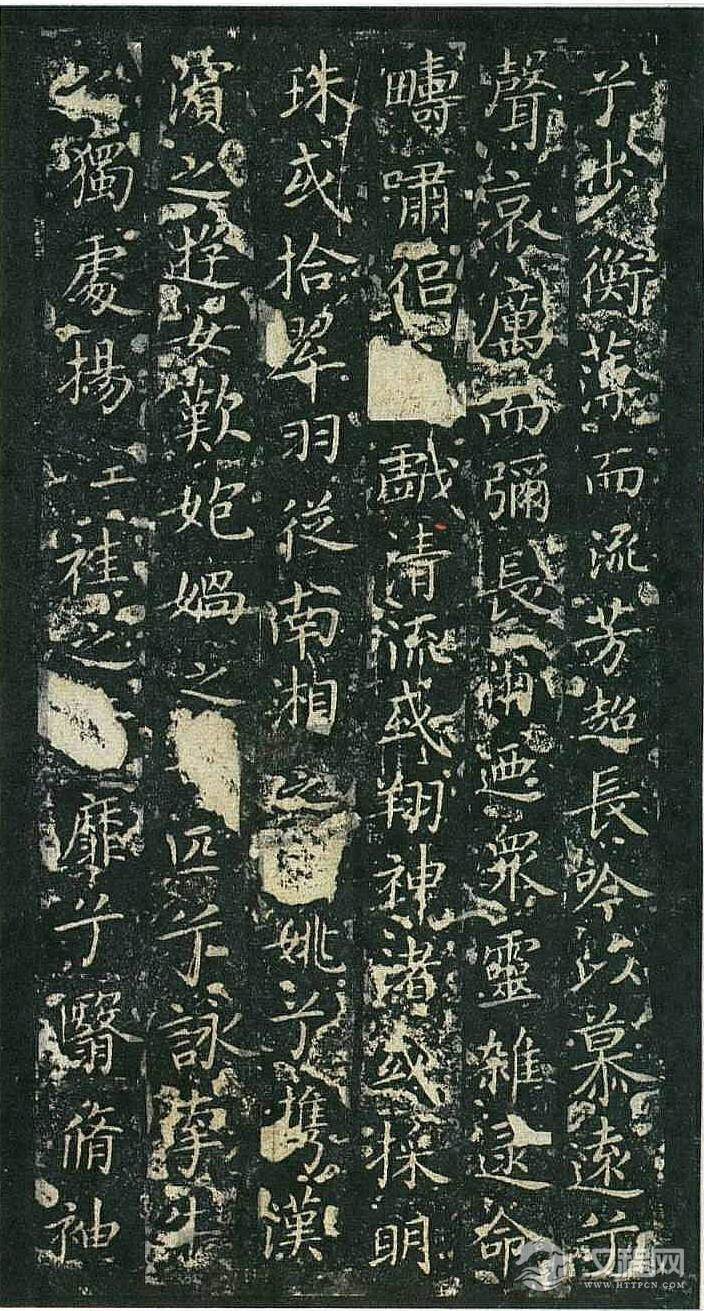 兮步衡薄而流芳超長吟以慕遠兮
聲哀厲而彌長爾迺衆靈雜遝命
疇嘯侶戲清流或翔神渚或採明
珠或拾翠羽從南湘之姚兮攜漢
濱之遊女歎媧之匹兮詠牽牛
之獨處揚袿之靡兮翳脩袖
汉程网
WWW.HTTPCN.COM